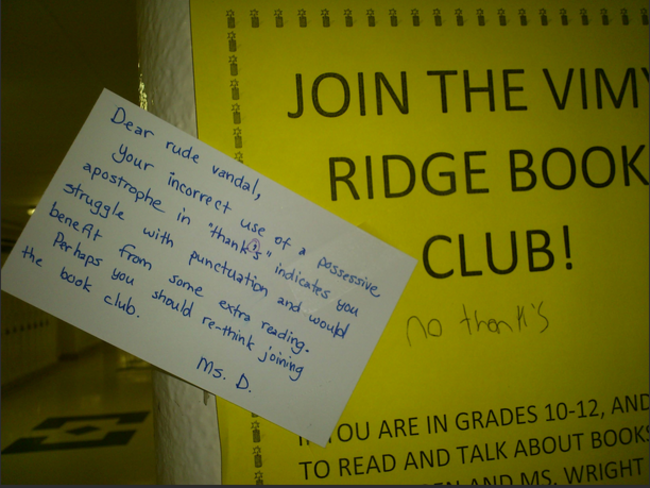 Dear rude vandal,
Your incorrect use of a possessive
apostrophe in "thank's" indicates you
struggle with punctuation and would
benefit from some extra reading.
Perhaps you should re-think joining
the book club.
Ms. D.
JOIN THE VIMY
RIDGE BOOK
CLUB!
no thank's
YOU ARE IN GRADES 10-12, AND
TO READ AND TALK ABOUT BOOKS
AND MS. WRIGHT